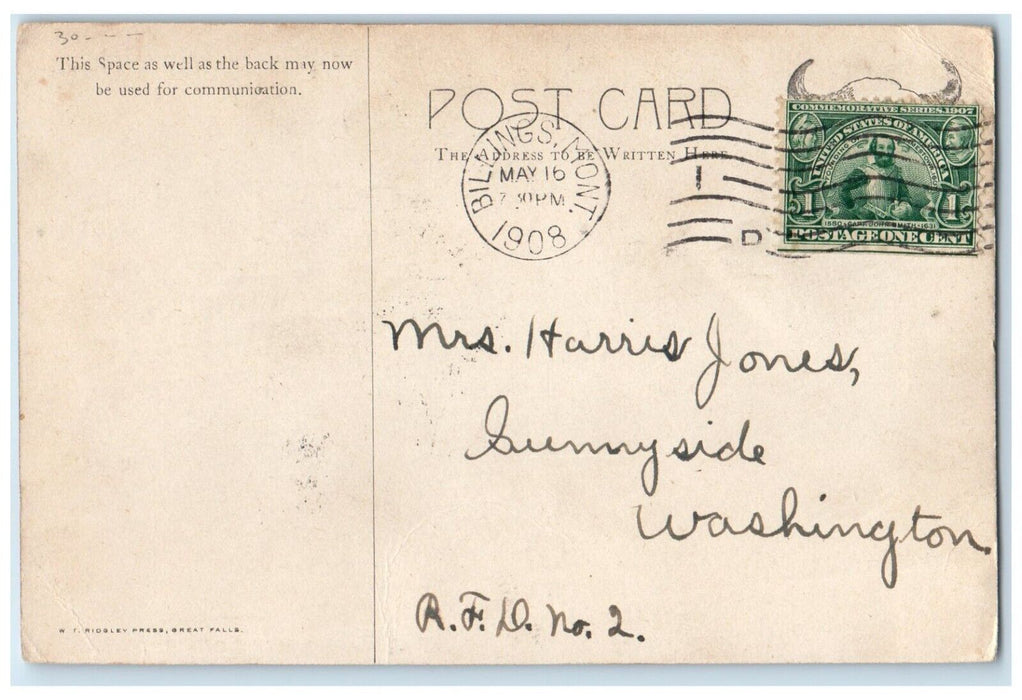 30 - - -
This Space as well as the back may now
be used for communication.
POST CARD
THE ADDRESS TO BE WRITTEN HERE
BILLINGS, MONT.
MAY 16
7 30 PM
1908
1
D
COMMEMORATIVE SERIES 1907
UNITED STATES OF AMERICA
FOUNDING OF JAMESTOWN
1 1
1580 CAPT. JOHN SMITH 1631
POSTAGE ONE CENT
Mrs. Harris Jones,
Sunnyside
Washington.
R.F.D. No. 2.
W. T. RIDGLEY PRESS, GREAT FALLS.